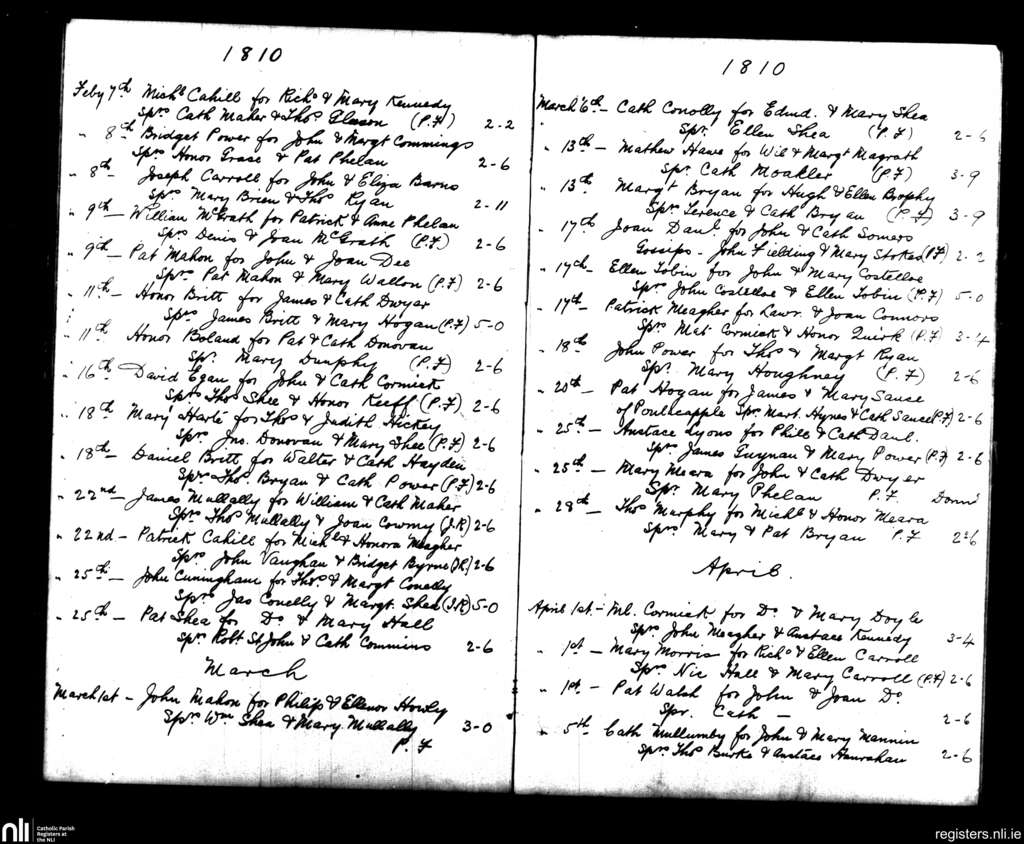 1810
Feby 7th Michl Cahill for Richd & Mary Kennedy
Sprs Cath Maher & Thos Gleeson (P.F) 2-2
" 8th Bridget Power for John & Margt Commings
Sprs Honor Grase & Pat Phelan 2-6
" 8th Joseph Carroll for John & Eliza Barns
Sprs Mary Brien & Thos Ryan 2-11
" 9th - William McGrath for Patrick & Anne Phelan
Sprs Denis & Joan McGrath (P.F.) 2-6
" 9th - Pat Mahon for John & Joan Dee
Sprs Pat Mahon & Mary Wallon (P.F) 2-6
" 11th - Honor Britt for James & Cath Dwyar
Sprs James Britt & Mary Hogan (P.F) 5-0
" 11th Honor Boland for Pat & Cath Donovan
Spr. Mary Dunphy (P.F) 2-6
" 16th - David Egan for John & Cath Cormick
Sprs Thos Shee & Honor Keeff (P.F) 2-6
" 18th - Mary Harte for Thos & Judith Hickey
Sprs Jno. Donovan & Mary Shee (P.F) 2-6
" 18th - Daniel Britt for Walter & Cath Hayden
Sprs Thos Bryan & Cath Power (P.F) 2-6
" 22nd - James Mullally for William & Cath Maher
Sprs Thos Mullally & Joan (J.R) 2-6
" 22nd - Patrick Cahill for Michl & Honora Meagher
Sprs John Vaughan & Bridget Byrne (J.R) 2-6
" 25th - John Cuningham for Thos & Margt Conelly
Sprs Jas Conelly & Margt. Shea (J.R) 5-0
" 25th - Pat Shea for Do & Mary Hall
Spr. Robt St John & Cath Commins 2-6
March
March 1st - John Mahon for Philip & Ellenor Howly
Sprs Wm Shea & Mary Mullally 3-0
P.F
1810
March 6th - Cath Conolly for Edmd. & Mary Shea
Spr. Ellen Shea (P.F) 2-6
" 13th - Mathew Hawe for Wil & Margt Magrath
Spr. Cath Moakler (P.F) 3-9
" 13th Margt Bryan for Hugh & Ellen Brophy
Sprs Terence & Cath Bryan (P.F) 3-9
" 17th Joan Danl. for John & Cath Somers
Gossips - John Fielding & Mary Stokes (P.F) 2-2
" 17th - Ellen Tobin for John & Mary Costelloe
Sprs John Costelloe & Ellen Tobin (P.F) 5-0
" 17th - Patrick Meagher for Lawr. & Joan Connors
Sprs Mat Cormick & Honor Quirk (P.F) 3-4
" 18th John Power for Thos & Margt Ryan
Spr. Mary Houghnay (P.F) 2-6
" 20th - Pat Hogan for James & Mary Sause
of Poulleapple Sprs Mart. Hynes & Cath Sause (P.F) 2-6
" 25th - Anstace Lyons for Phill & Cath Danl.
Sprs James Guynan & Mary Power (P.F) 2-6
" 25th - Mary Meara for John & Cath Dwyer
Spr. Mary Phelan P.F.
" 28th - Thos Murphy for Michl & Honor Meara
Sprs Mary & Pat Bryan P.F 2-6
April.
April 1st - Ml. Cormick for Do & Mary Doyle
Sprs John Meagher & Anstace Kennedy 3-4
" 1st - Mary Morris for Richd & Ellen Carroll
Sprs Nic Hall & Mary Carroll (P.F) 2-6
" 1st - Pat Walsh for John & Joan Do
Spr. Cath - 2-6
" 5th Cath Mullumby for John & Mary Mannin
Sprs Thos Burke & Anstace Hanrahan 2-6
nli
Catholic Parish
Registers at
the NLI
registers.nli.ie